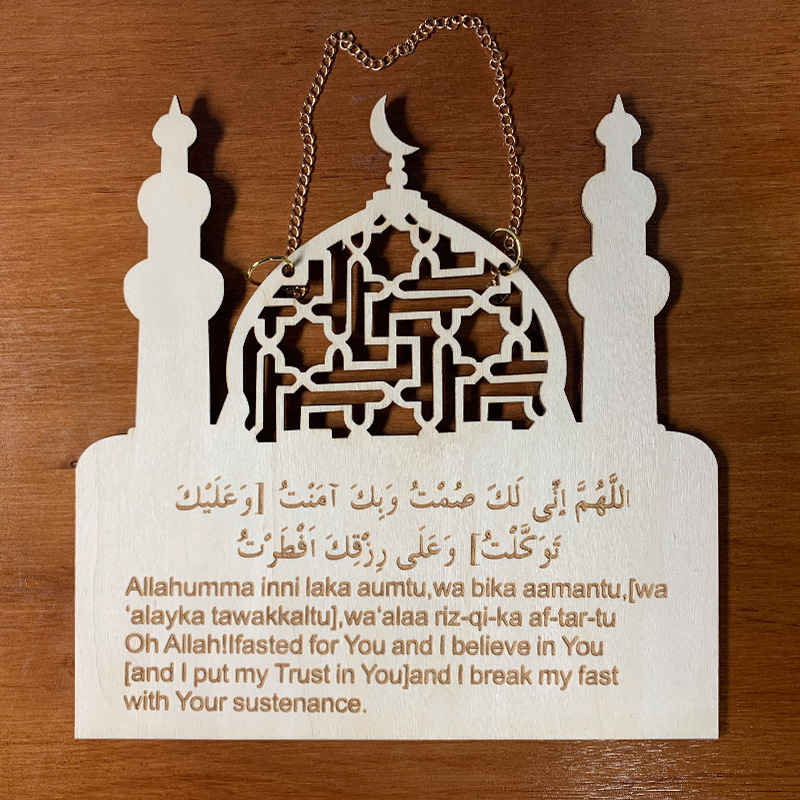 اللَّهُمَّ إِنِّى لَكَ صُمْتُ وَبِكَ آمَنْتُ [وَعَلَيْكَ
تَوَكَّلْتُ] وَعَلَى رِزْقِكَ اَفْطَرْتُ
Allahumma inni laka aumtu,wa bika aamantu,[wa
‘alayka tawakkaltu],wa‘alaa riz-qi-ka af-tar-tu
Oh Allah!Ifasted for You and I believe in You
[and I put my Trust in You]and I break my fast
with Your sustenance.